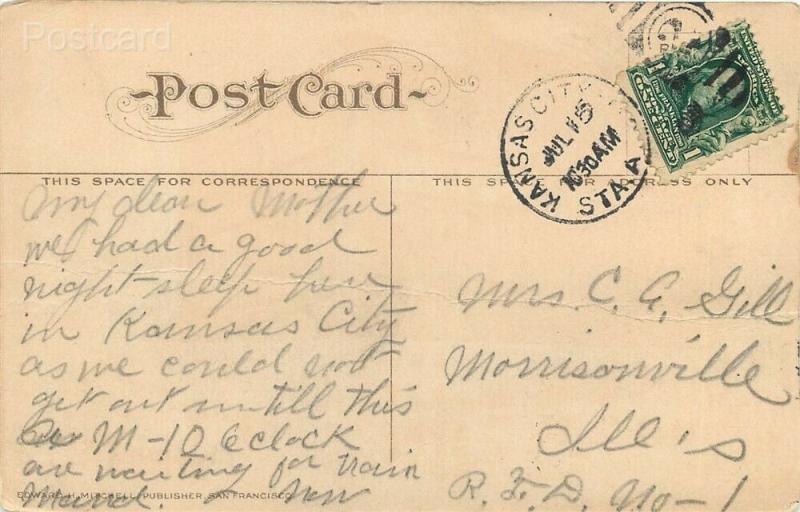 Postcard
Post Card
KANSAS CITY
JUL 15
10:30 AM
STA. A
THIS SPACE FOR CORRESPONDENCE
THIS SPACE FOR ADDRESS ONLY
My dear Mother
we had a good
night sleep here
in Kansas City
as we could not
get out untill this
A M-10 Oclock
are waiting for train
Maud. now
EDWARD H. MITCHELL, PUBLISHER, SAN FRANCISCO
Mrs. C. A. Gill
Morrisonville
Ill's
R. F. D. No-1